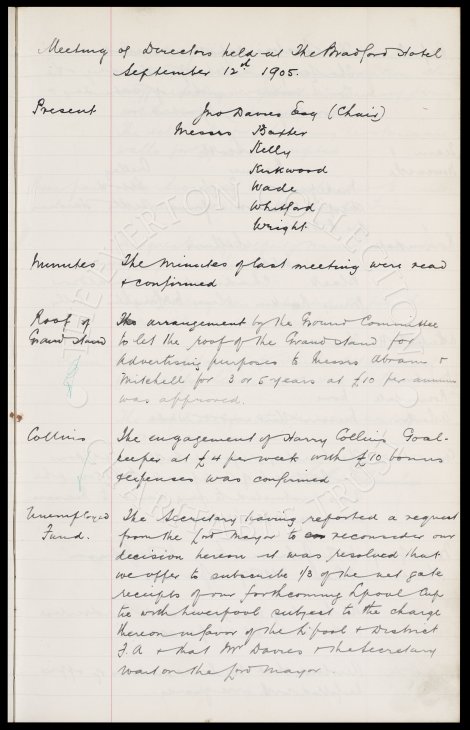 Meeting of Directors held at The Bradford Hotel
September 12th 1905.
Present Jno Davies Esq (Chair)
Messrs Baxter
Kelly
Kirkwood
Wade
Whitford
Wright
Minutes The Minutes of last meeting were read
& confirmed
Roof of The arrangement by the Ground Committee
Grand Stand to let the roof of the Grand stand for
Advertising purposes to Messrs Abrams &
Mitchell for 3 or 5 years at £10 per annum
was approved.
Collins The engagement of Harry Collins Goal-
keeper at £4 per week with £10 bonus
& expenses was confirmed
Unemployed The Secretary having reported a request
Fund. from the Lord Mayor to reconsider our
decision hereon it was resolved that
we offer to subscribe 1/3 of the net gate
receipts of our forthcoming Lpool Cup
tie with Liverpool subject to the charge
thereon in favor of the L'pool & District
F.A & that Mr Davies & the Secretary
wait on the Lord Mayor.
THE EVERTON COLLECTION
CHARITABLE TRUST